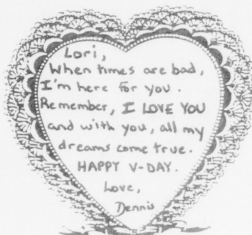 Lori,
When times are bad,
I'm here for you.
Remember, I LOVE YOU
and with you, all my
dreams come true.
HAPPY V-DAY.
Love,
Dennis